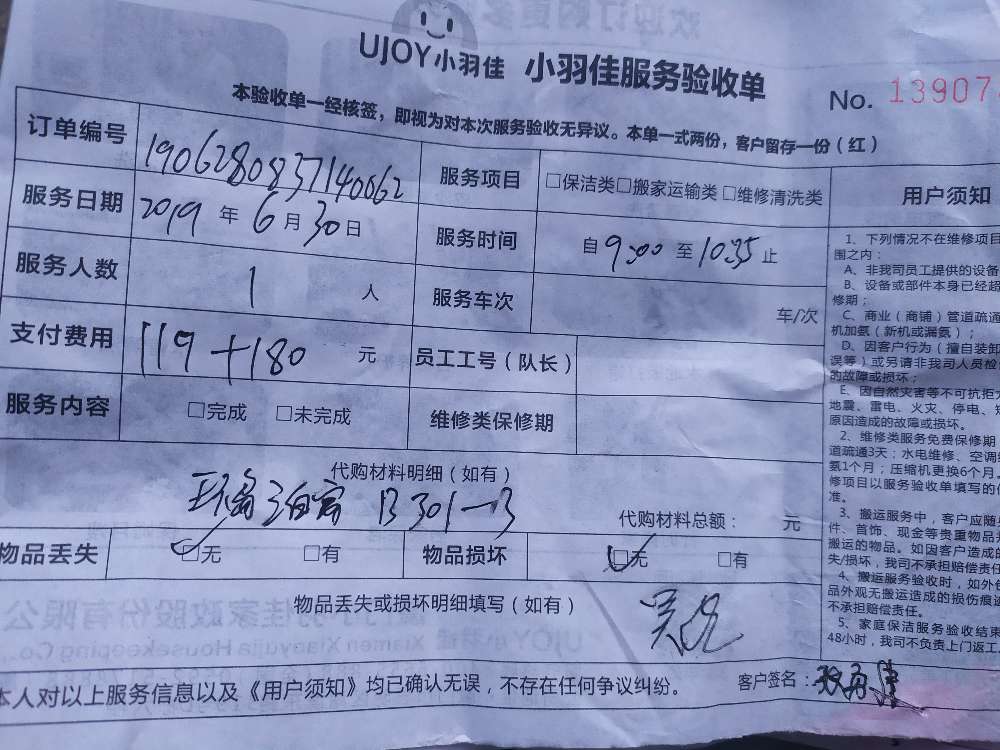 UJOY小羽佳 小羽佳服务验收单
No. 13907
本验收单一经核签，即视为对本次服务验收无异议。本单一式两份，客户留存一份（红）
订单编号 1906280837140062 服务项目 □保洁类□搬家运输类 □维修清洗类
服务日期 2019 年 6 月 30 日 服务时间 自 9:00 至 10:35 止
服务人数 1 人 服务车次 车/次
支付费用 119+180 元 员工工号（队长）
服务内容 □完成 □未完成 维修类保修期
代购材料明细（如有）
B301-B
代购材料总额： 元
物品丢失 □无 □有 物品损坏 □无 □有
物品丢失或损坏明细填写（如有）
本人对以上服务信息以及《用户须知》均已确认无误，不存在任何争议纠纷。 客户签名：
用户须知
1、下列情况不在维修项目
围之内：
A、非我司员工提供的设备
B、设备或部件本身已经超
修期；
C、商业（商铺）管道疏通
机加氨（新机或漏氨）；
D、因客户行为（擅自装卸
误等）或另请非我司人员检
的故障或损坏；
E、因自然灾害等不可抗拒
地震、雷电、火灾、停电、
原因造成的故障或损坏。
2、维修类服务免费保修期
道疏通3天；水电维修、空调
氨1个月；压缩机更换6个月
修项目以服务验收单填写的
准。
3、搬运服务中，客户应随
件、首饰、现金等贵重物品
搬运的物品。如因客户造成的
失/损坏，我司不承担赔偿责任
4、搬运服务验收时，如外包
品外观无搬运造成的损伤痕迹
不承担赔偿责任。
5、家庭保洁服务验收结束
48小时，我司不负责上门返工